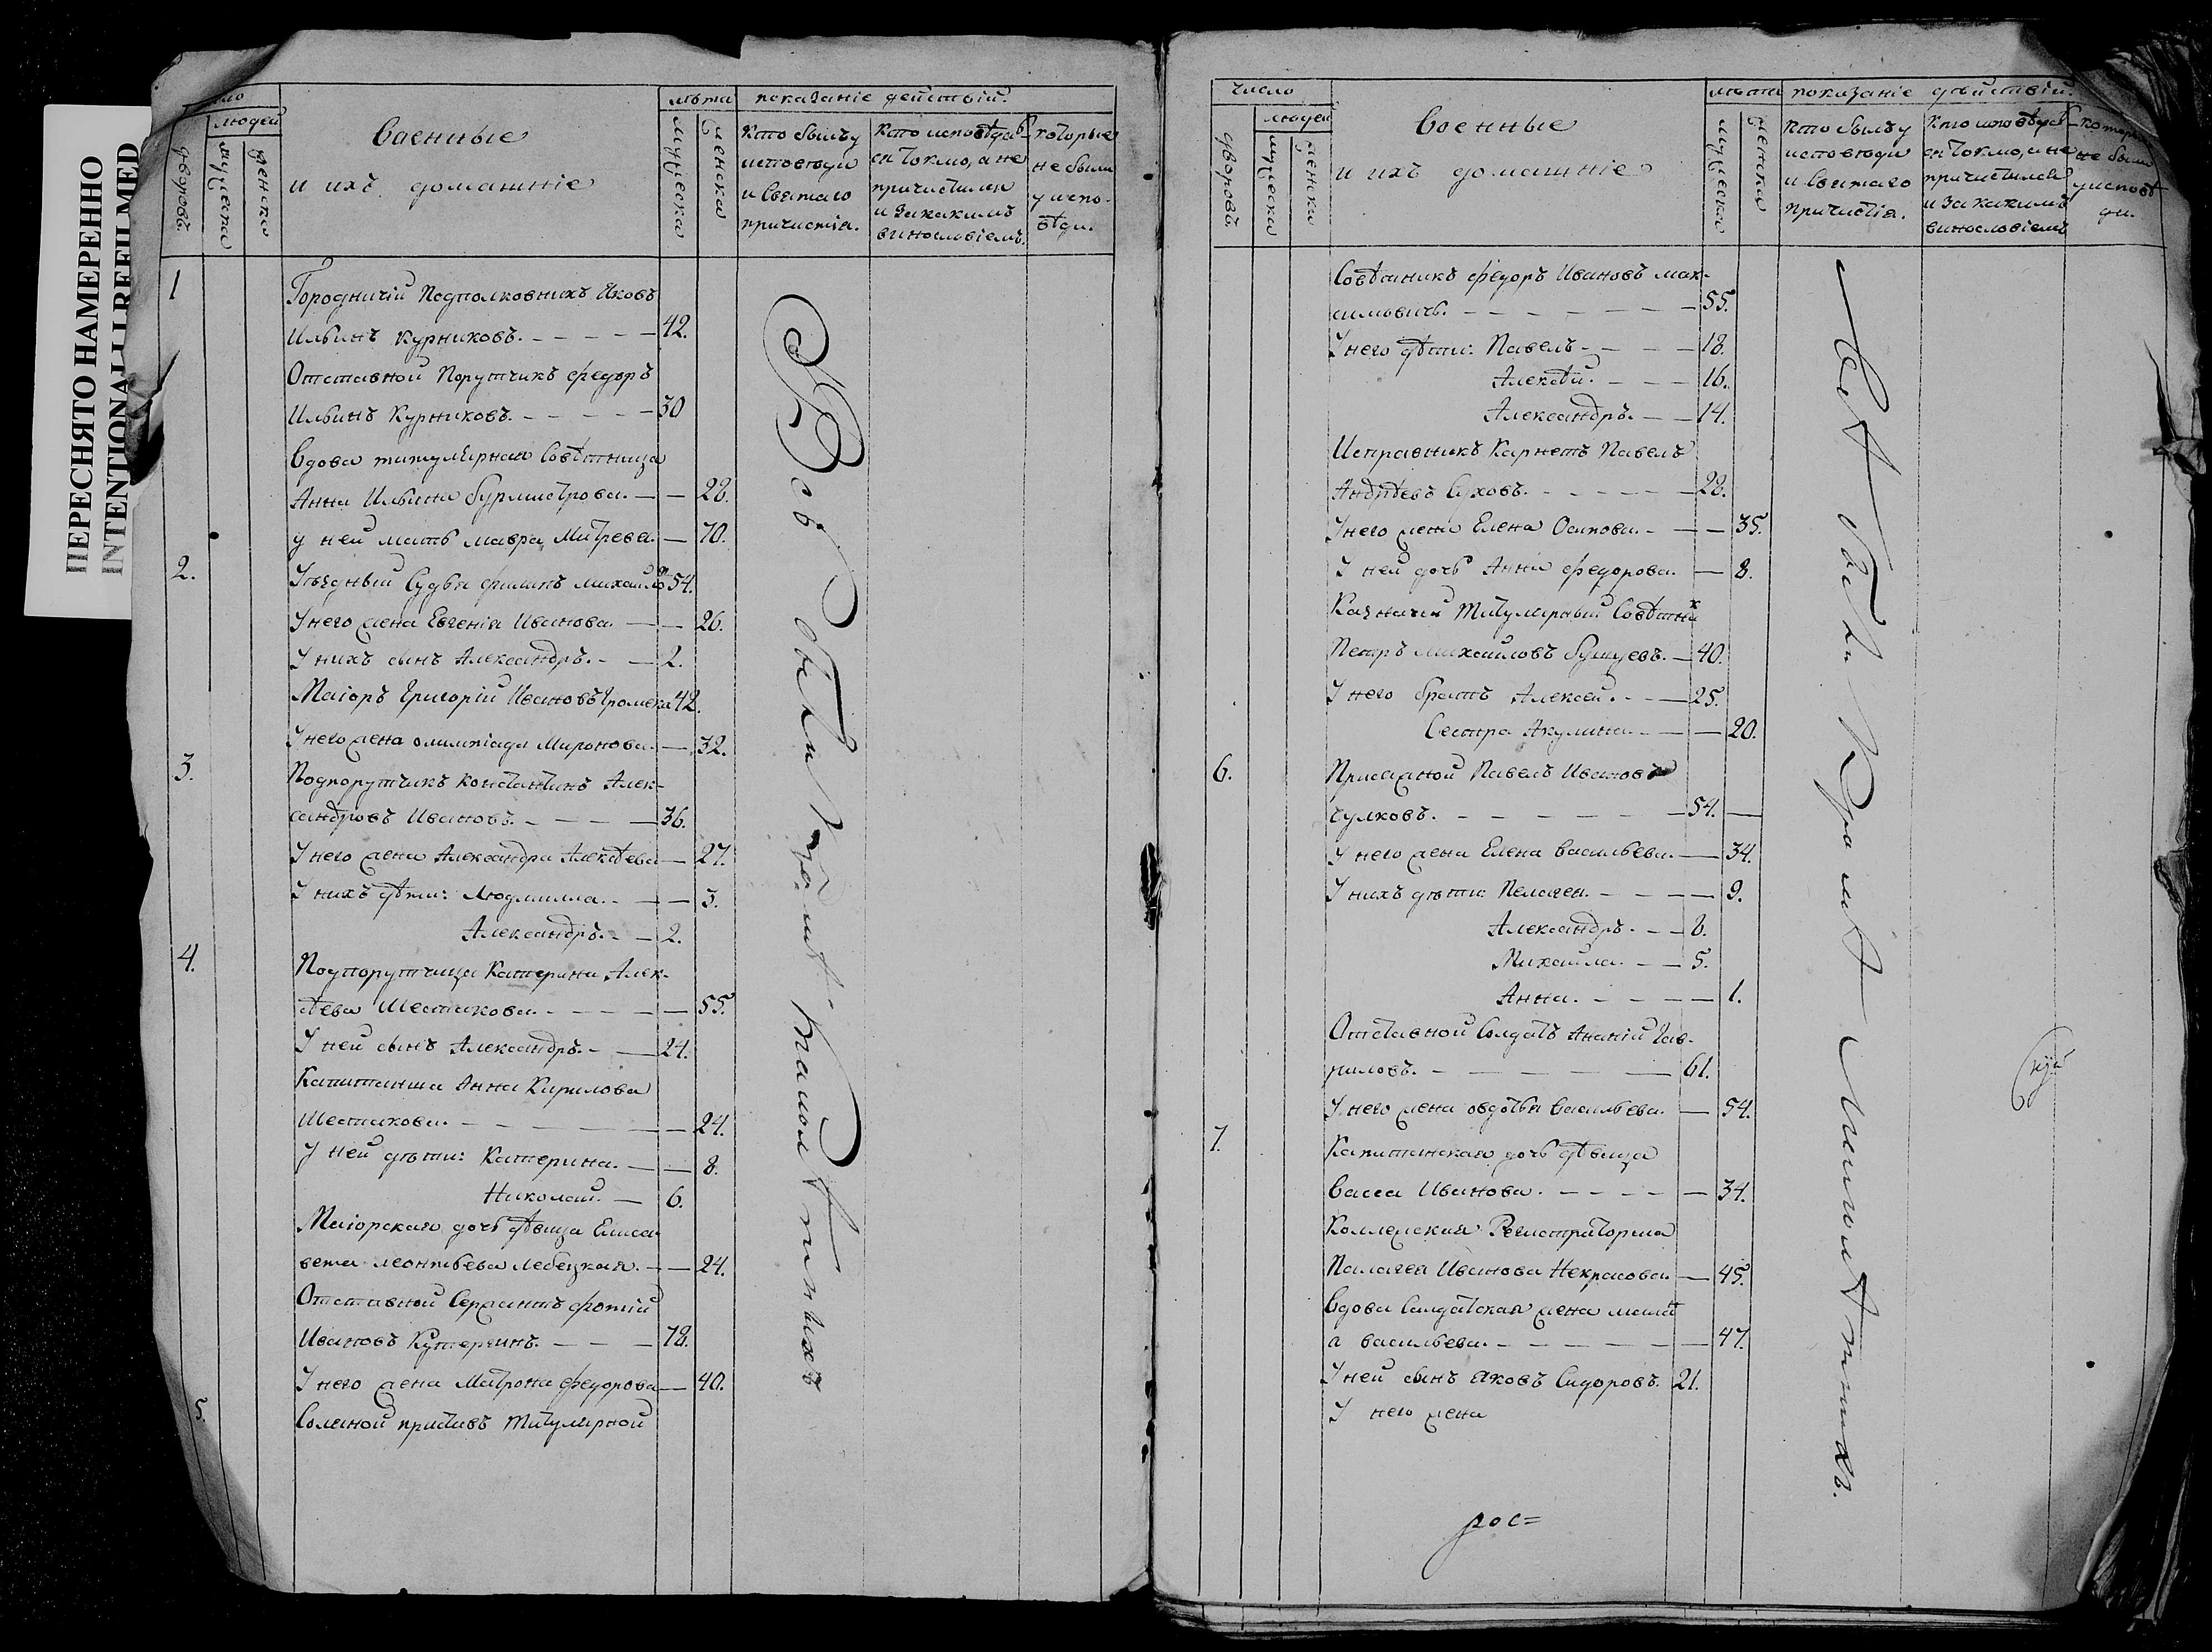 ПЕРЕСНЯТО НАМЕРЕННО
INTENTIONALLY REFILMED
людей
дворовъ.
мужеска
женска
Военные
и ихъ домашніе
лѣта
мужеска
женска
показаніе действій.
Кто былъ у
исповѣди
и Святаго
причастія.
Кто исповѣдов
ся токмо, а не
причастился
и за какимъ
винословіемъ.
которые
не были
у испо-
вѣди.
1
Городничій Подполковникъ Яковъ
Ильинъ Курниковъ. 42.
Отставной Порутчикъ Федоръ
Ильинъ Курниковъ. 30
Вдова титулярная Совѣтница
Анна Ильина Бурмистрова. 28.
у ней мать Мавра Митрева. 70.
2.
Уѣздный Судья Филипъ Михайло 54.
У него жена Евгенія Иванова. 26.
У нихъ сынъ Александръ. 2.
Маіоръ Григорій Ивановъ Громека 42.
У него жена Олимпіада Миронова. 32.
3.
Подпорутчикъ Константинъ Алек-
сандровъ Ивановъ. 36.
У него жена Александра Алексѣева 27.
У нихъ дѣти: Людмилла. 3.
Александръ. 2.
4.
Подпорутчица Катерина Алек-
сѣева Шестакова. 55.
У ней сынъ Александръ. 24.
Капитанша Анна Кирилова
Шестакова. 24.
У ней дѣти: Катерина. 8.
Николай. 6.
Маіорская дочь дѣвица Елиса-
вета Леонтьева Лебецкая. 24.
Отставной Сержантъ Фотій
Ивановъ Кутергинъ. 78.
У него жена Матрона Федорова 40.
5
Соляной приставъ Титулярной
Всѣ были кромѣ малолѣтнихъ
число
людей
дворовъ.
мужеска
женска
Военные
и ихъ домашніе
лѣта
мужеска
женска
показаніе дѣйствій.
Кто былъ у
исповѣди
и Святаго
причастія.
Кто исповѣдов
ся токмо, а не
причастился
и за какимъ
винословіемъ
которые
не были
у исповѣ
ди.
Совѣтникъ Федоръ Ивановъ Мак-
симовичь. 55.
У него дѣти: Павелъ 18.
Алексѣй. 16.
Александръ. 14.
Исправникъ Карнетъ Павелъ
Андрѣевъ Суховъ. 28.
У него жена Елена Осипова. 35.
У ней дочь Анна Федорова. 8.
Казначей Титулярный Совѣтник
Петръ Михайловъ 40.
У него братъ Алексей. 25.
Сестра Акулина. 20.
6.
Присяжной Павелъ Ивановъ
Чулковъ. 54.
У него жена Елена Васильева. 34.
У нихъ дѣти: Пелагея. 9.
Александръ. 8.
Михайла. 5.
Анна. 1.
Отставной Солдатъ Ананій Гав-
риловъ. 61.
У него жена Овдотья Васильева. 54.
7.
Капитанская дочь дѣвица
Васса Иванова. 34.
Коллежская Регистраторша
Палагея Иванова Некрасова. 45.
Вдова Солдатская жена
а Васильева. 47.
У ней сынъ Яковъ Сидоровъ. 21.
У него жена
Всѣ были кромѣ малолѣтнихъ.
рос=